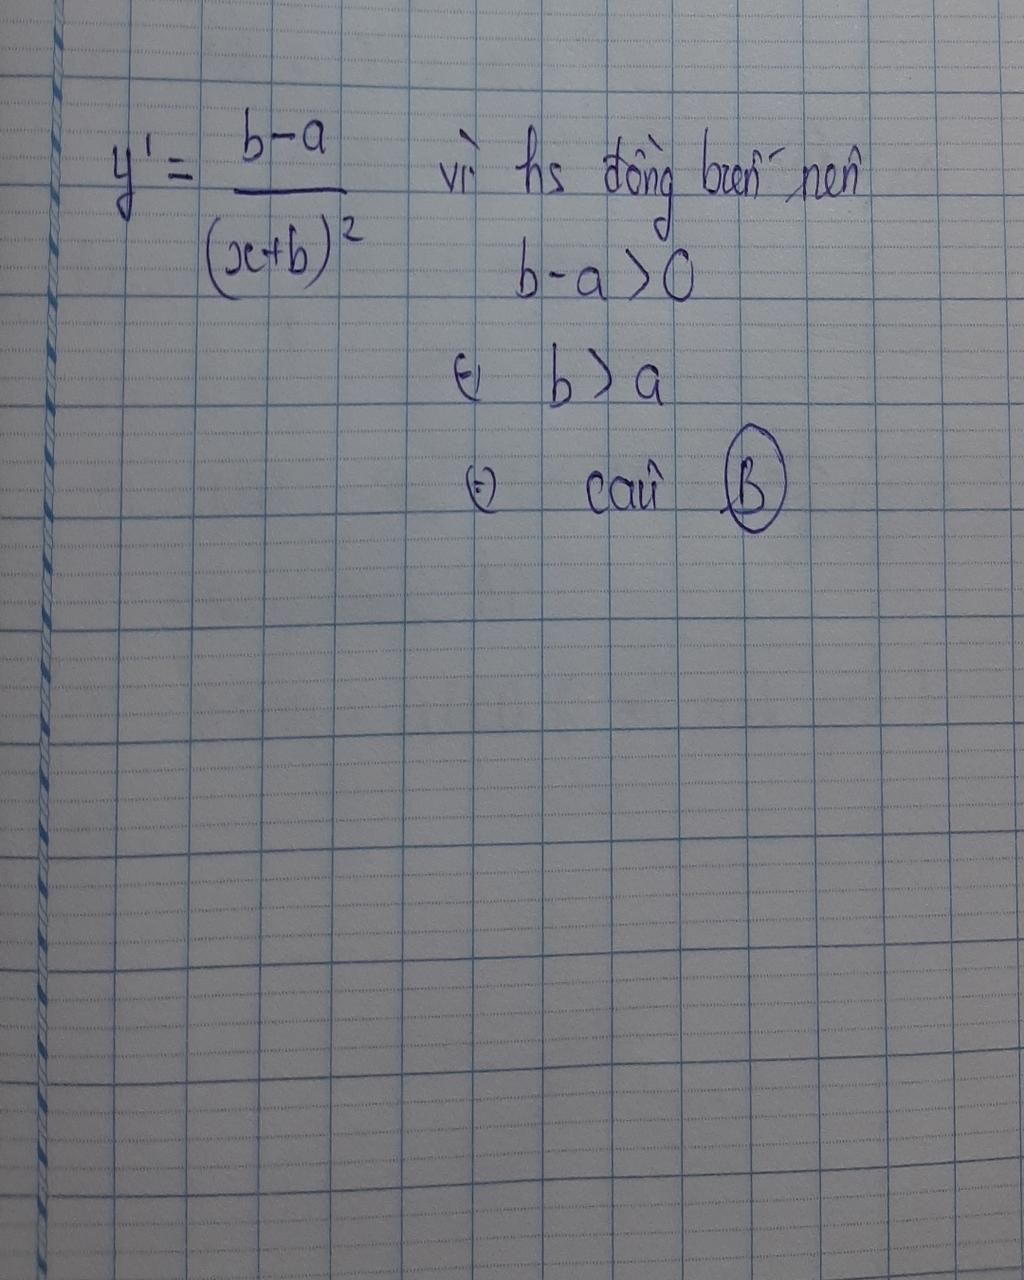 y' = b-a / (x+b)² vì hs đồng biến nên
b-a > 0
⇔ b > a
⇔ câu B